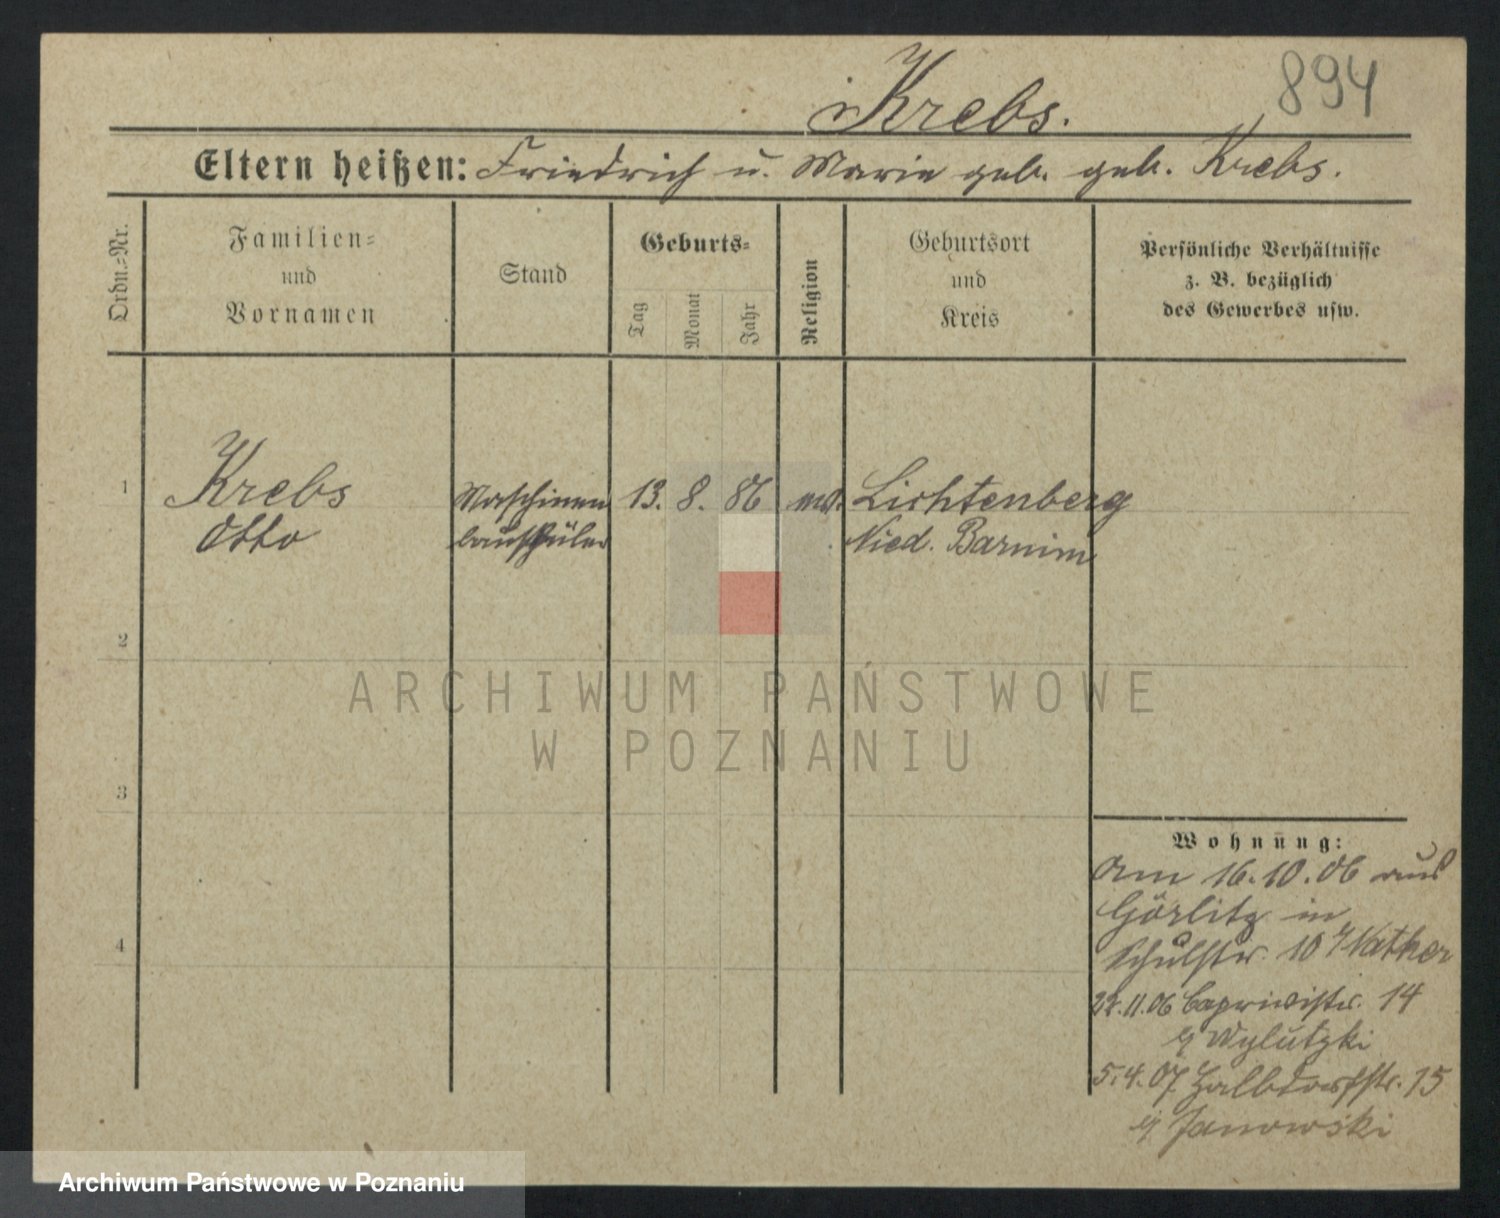 Krebs.
894
Eltern heißen: Friedrich u. Marie geb. geb. Krebs.
Ordn.-Nr.
Familien-
und
Vornamen
Stand
Geburts-
Tag
Monat
Jahr
Religion
Geburtsort
und
Kreis
Persönliche Verhältnisse
z. B. bezüglich
des Gewerbes usw.
1
Krebs
Otto
Maschinen
bauschüler
13. 8. 86
Lichtenberg
Nied. Barnim
2
3
4
Wohnung:
Am 16.10.06 aus
Görlitz in
Schulstr. 10
11.06 Caprivistr. 14
Wylutzki
5.4.07 Halbdorfstr. 15
Janowski
ARCHIWUM PAŃSTWOWE
W POZNANIU
Archiwum Państwowe w Poznaniu